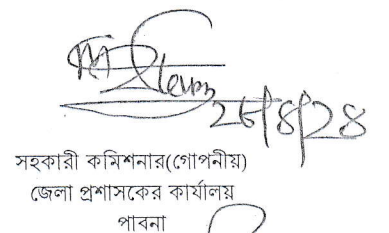 ২৮/৪/২৪
সহকারী কমিশনার(গোপনীয়)
জেলা প্রশাসকের কার্যালয়
পাবনা